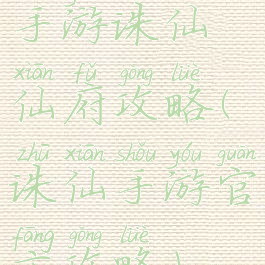 手游诛仙
xiān fǔ gōng lüè
仙府攻略(
zhū xiān shǒu yóu guān
诛仙手游官
fāng gōng lüè
方攻略)